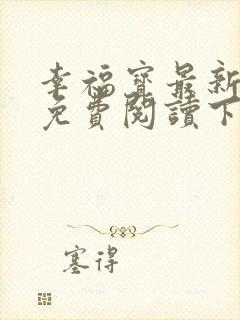 幸福寳最新
免費閱讀下
塞得